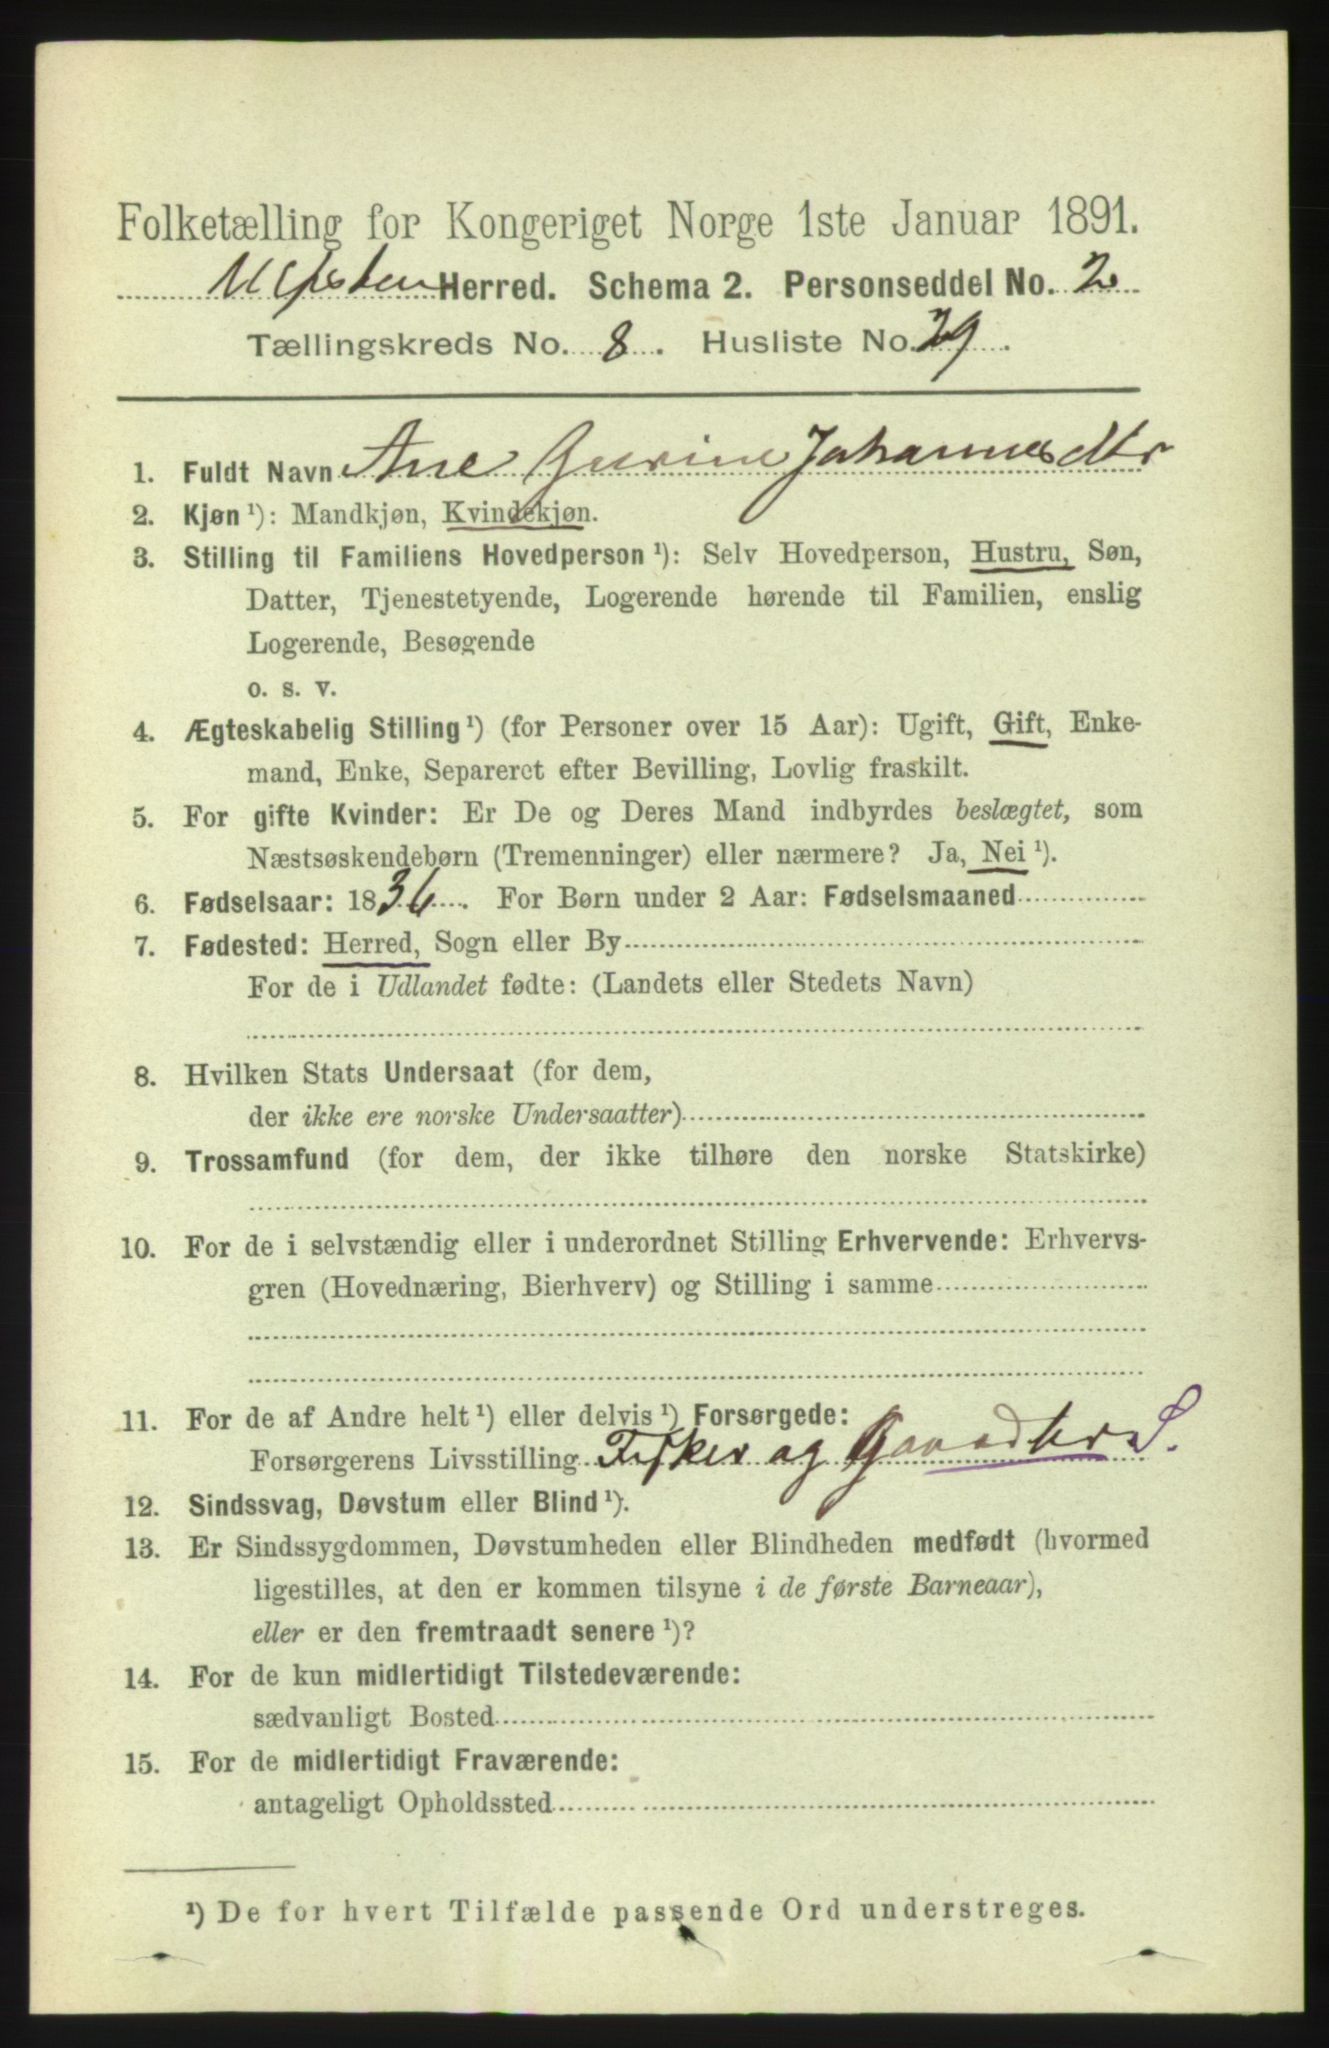 Folketælling for Kongeriget Norge 1ste Januar 1891.
Ulfsten Herred. Schema 2. Personseddel No. 2
Tællingskreds No. 8. Husliste No. 29.
1. Fuldt Navn Ane Gurine Johannesdtr
2. Kjøn ¹): Mandkjøn, Kvindekjøn.
3. Stilling til Familiens Hovedperson ¹): Selv Hovedperson, Hustru, Søn,
Datter, Tjenestetyende, Logerende hørende til Familien, enslig
Logerende, Besøgende
o. s. v.
4. Ægteskabelig Stilling ¹) (for Personer over 15 Aar): Ugift, Gift, Enke-
mand, Enke, Separeret efter Bevilling, Lovlig fraskilt.
5. For gifte Kvinder: Er De og Deres Mand indbyrdes beslægtet, som
Næstsøskendebørn (Tremenninger) eller nærmere? Ja, Nei ¹).
6. Fødselsaar: 1836. For Børn under 2 Aar: Fødselsmaaned
7. Fødested: Herred, Sogn eller By
For de i Udlandet fødte: (Landets eller Stedets Navn)
8. Hvilken Stats Undersaat (for dem,
der ikke ere norske Undersaatter)
9. Trossamfund (for dem, der ikke tilhøre den norske Statskirke)
10. For de i selvstændig eller i underordnet Stilling Erhvervende: Erhvervs-
gren (Hovednæring, Bierhverv) og Stilling i samme
11. For de af Andre helt ¹) eller delvis ¹) Forsørgede:
Forsørgerens Livsstilling Fisker og Gaardbr S.
12. Sindssvag, Døvstum eller Blind ¹).
13. Er Sindssygdommen, Døvstumheden eller Blindheden medfødt (hvormed
ligestilles, at den er kommen tilsyne i de første Barneaar),
eller er den fremtraadt senere ¹)?
14. For de kun midlertidigt Tilstedeværende:
sædvanligt Bosted
15. For de midlertidigt Fraværende:
antageligt Opholdssted
¹) De for hvert Tilfælde passende Ord understreges.